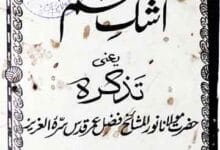 اشک
یعنی
تذکرہ
حضرت مولانا نور المشائخ فضل عمر قدس سرہ العزیز